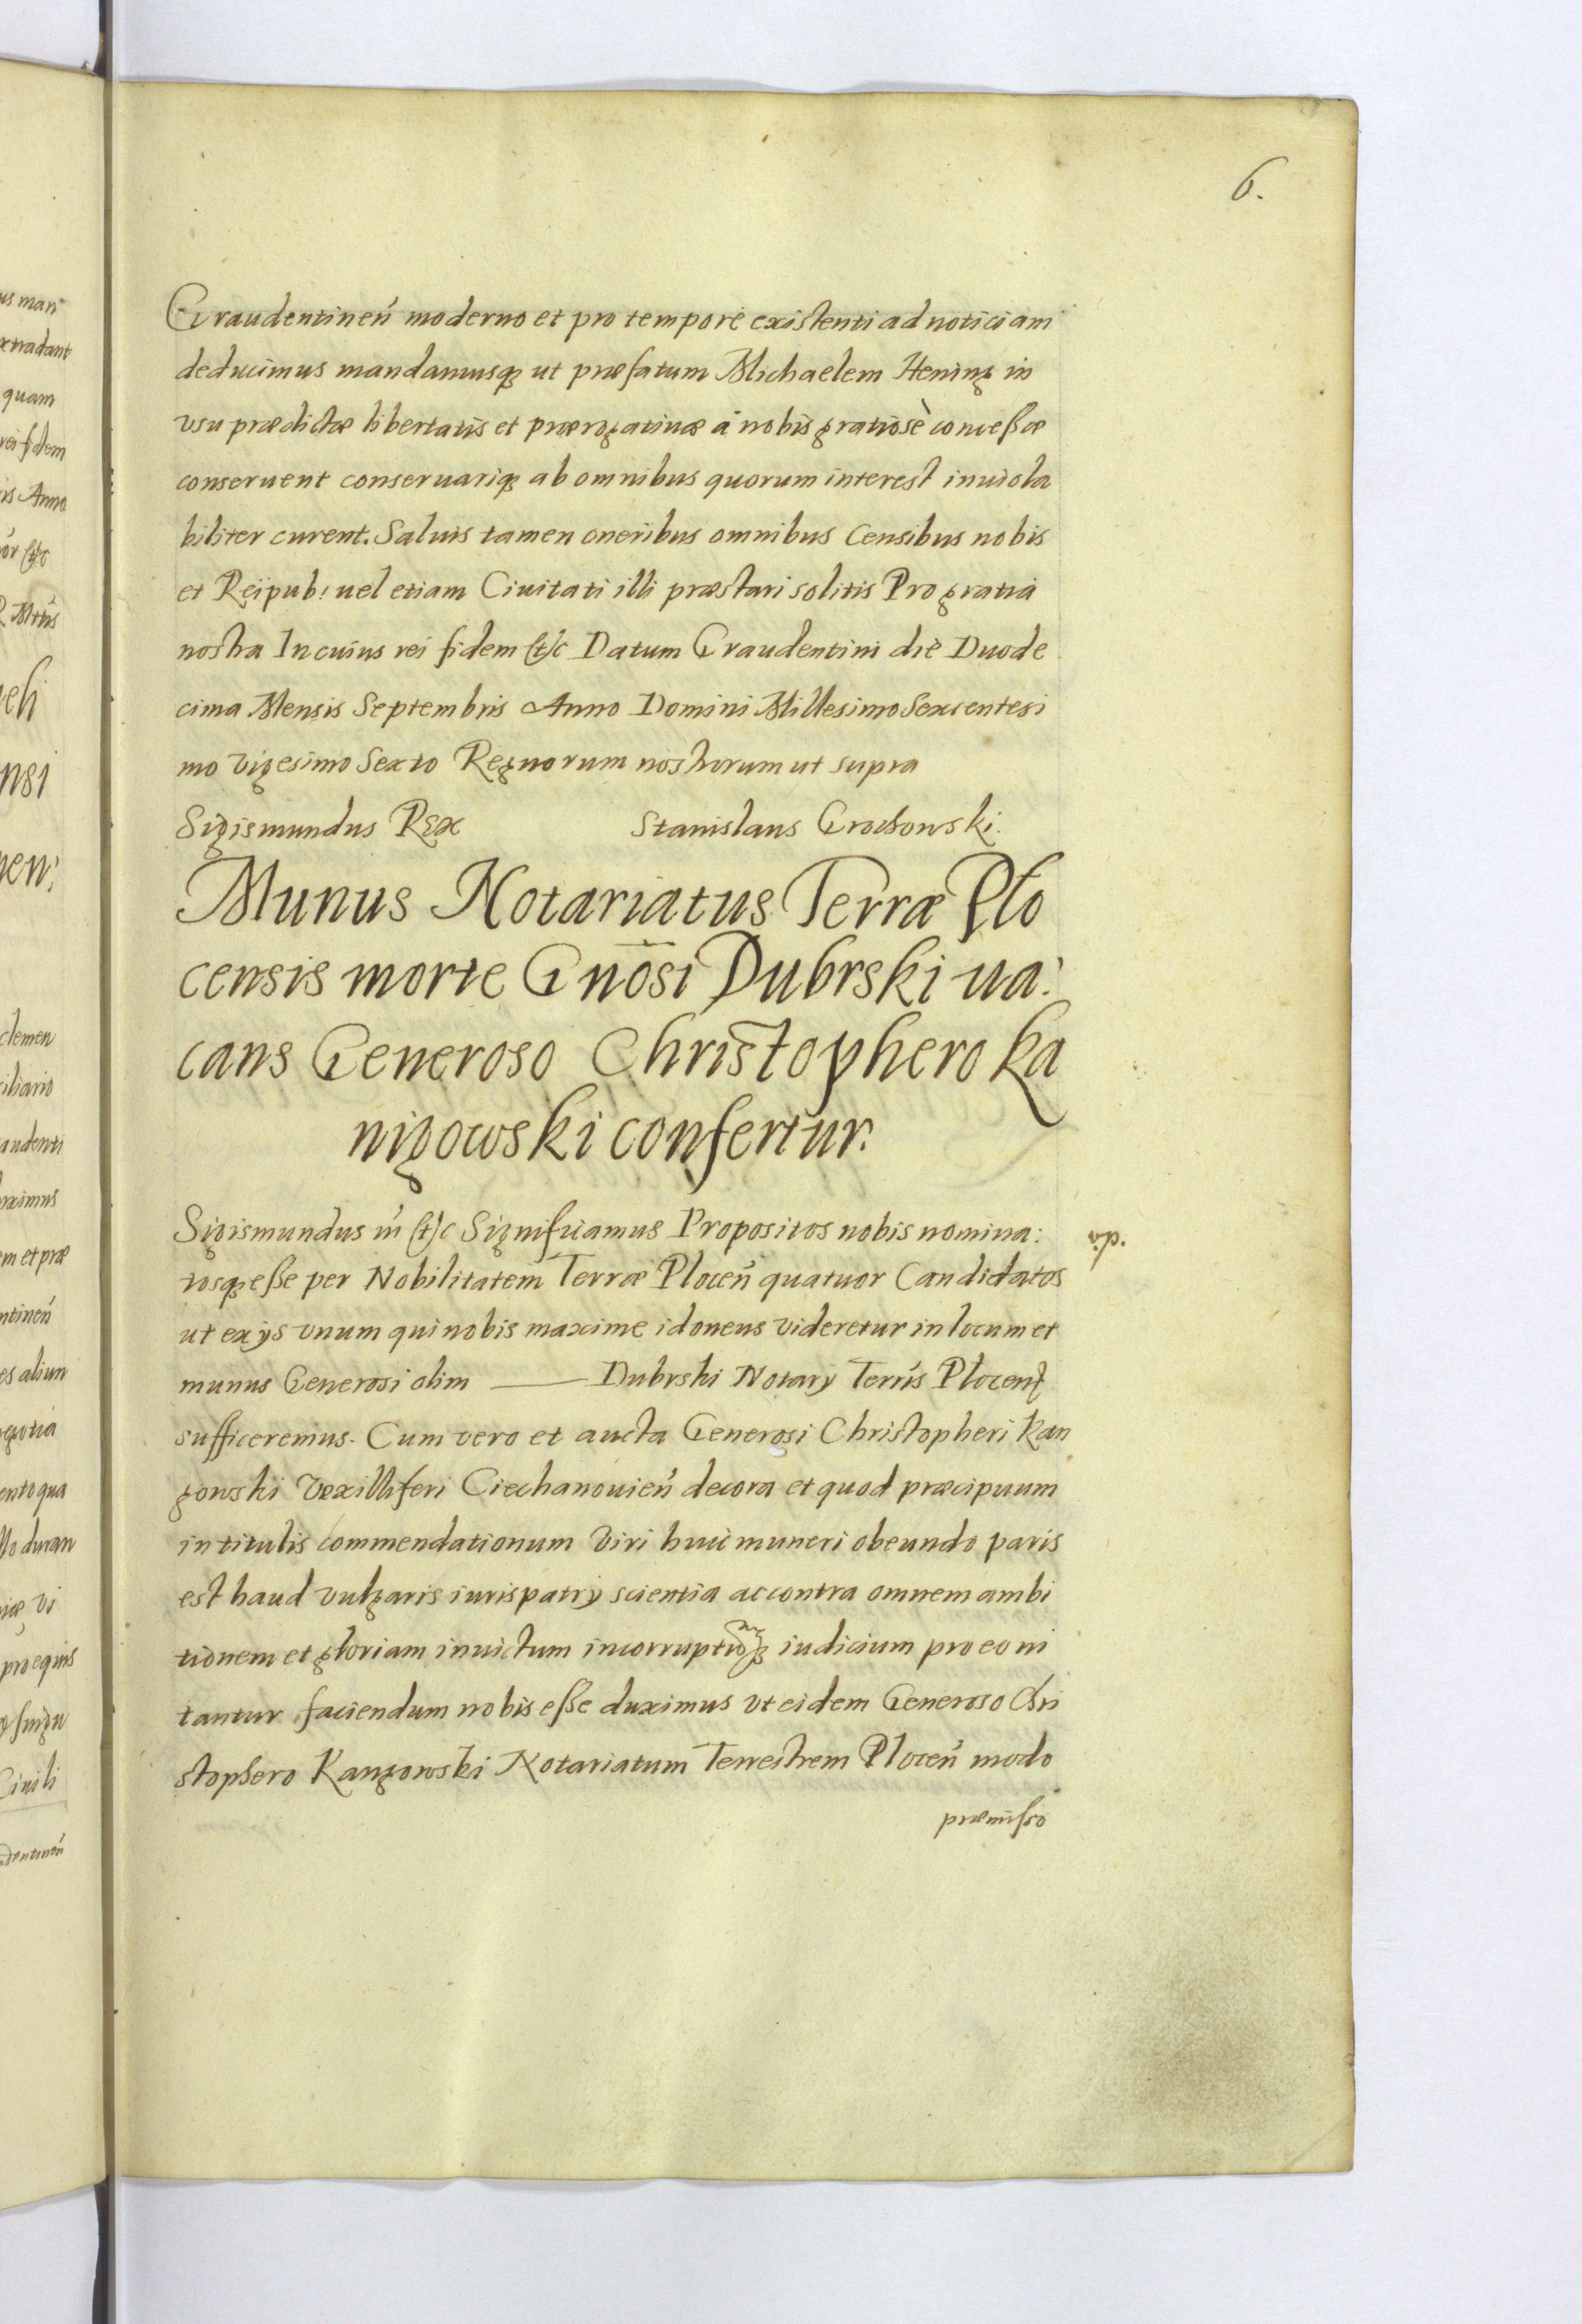 6.
Graudentineñ moderno et pro tempore existenti ad noticiam
deducimus mandamusq₃ ut præfatum Michaelem Hening in
vsu prædictæ libertatis et prærogatiuæ à nobis gratiosè conceßæ
conseruent conseruariq₃ ab omnibus quorum interest inuiola
biliter curent. Saluis tamen oneribus omnibus Censibus nobis
et Reipub: uel etiam Ciuitati illi præstari solitis Pro gratia
nostra In cuius rei fidem (t)c Datum Graudentini die Duode
cima Mensis Septembris Anno Domini Millesimo Sexcentesi
mo vigesimo Sexto Regnorum nostrorum ut supra
Sigismundus Rex Stanislaus Grochowski.
Munus Notariatus Terræ Plo
censis morte Gnōsi Dubrski ua:
cans Generoso Christophero Ka
nigowski confertur.
Sigismundus iñ (t)c Significamus Propositos nobis nomina:
tosq₃ eße per Nobilitatem Terræ Ploceñ quatuor Candidatos
ut ex ijs vnum qui nobis maxime idoneus videretur in locum et
munus Generosi olim —— Dubrski Notarij Terris Plocen₃
sufficeremus. Cum vero et aucta Generosi Christopheri Kan
gowski Vexilliferi Ciechanouieñ decora et quod præcipuum
in titulis commendationum viri huic muneri obeundo paris
est haud vulgaris iuris patrij scientia ac contra omnem ambi
tionem et gloriam inuictum incorruptumq₃ iudicium pro eo ni
tantur faciendum nobis eße duximus vt eidem Generoso Chri
stophero Kangowski Notariatum Terrestrem Ploceñ modo
præmißo